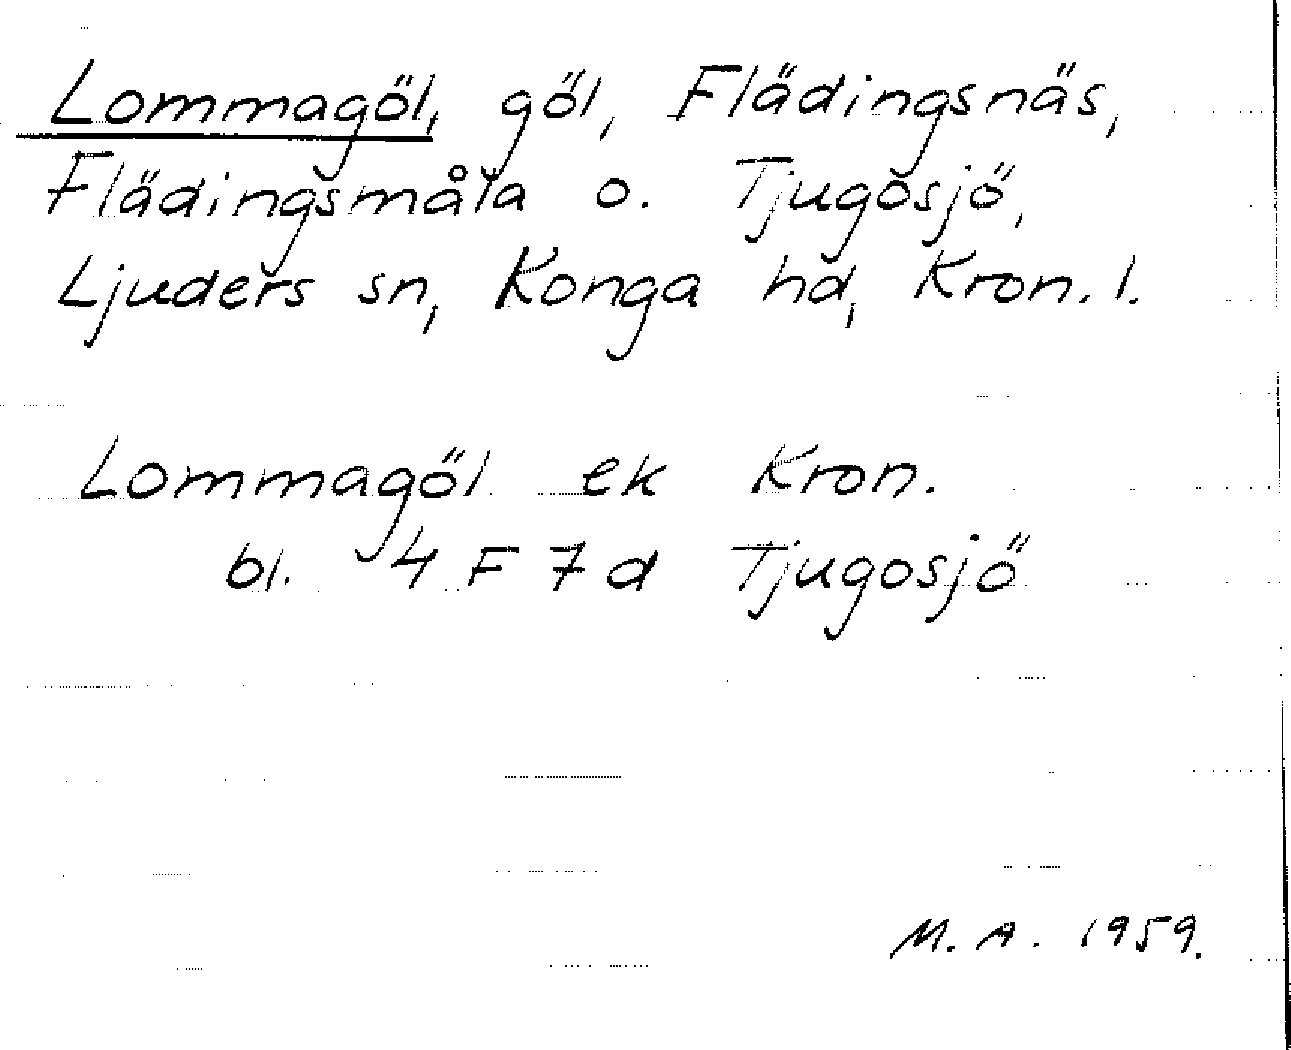 Lommagöl, göl, Flädingsnäs,
Flädingsmåla o. Tjugosjö,
Ljuders sn, Konga hd, Kron. l.
Lommagöl ek Kron.
bl. 4 F 7 d Tjugosjö
M. A. 1959.